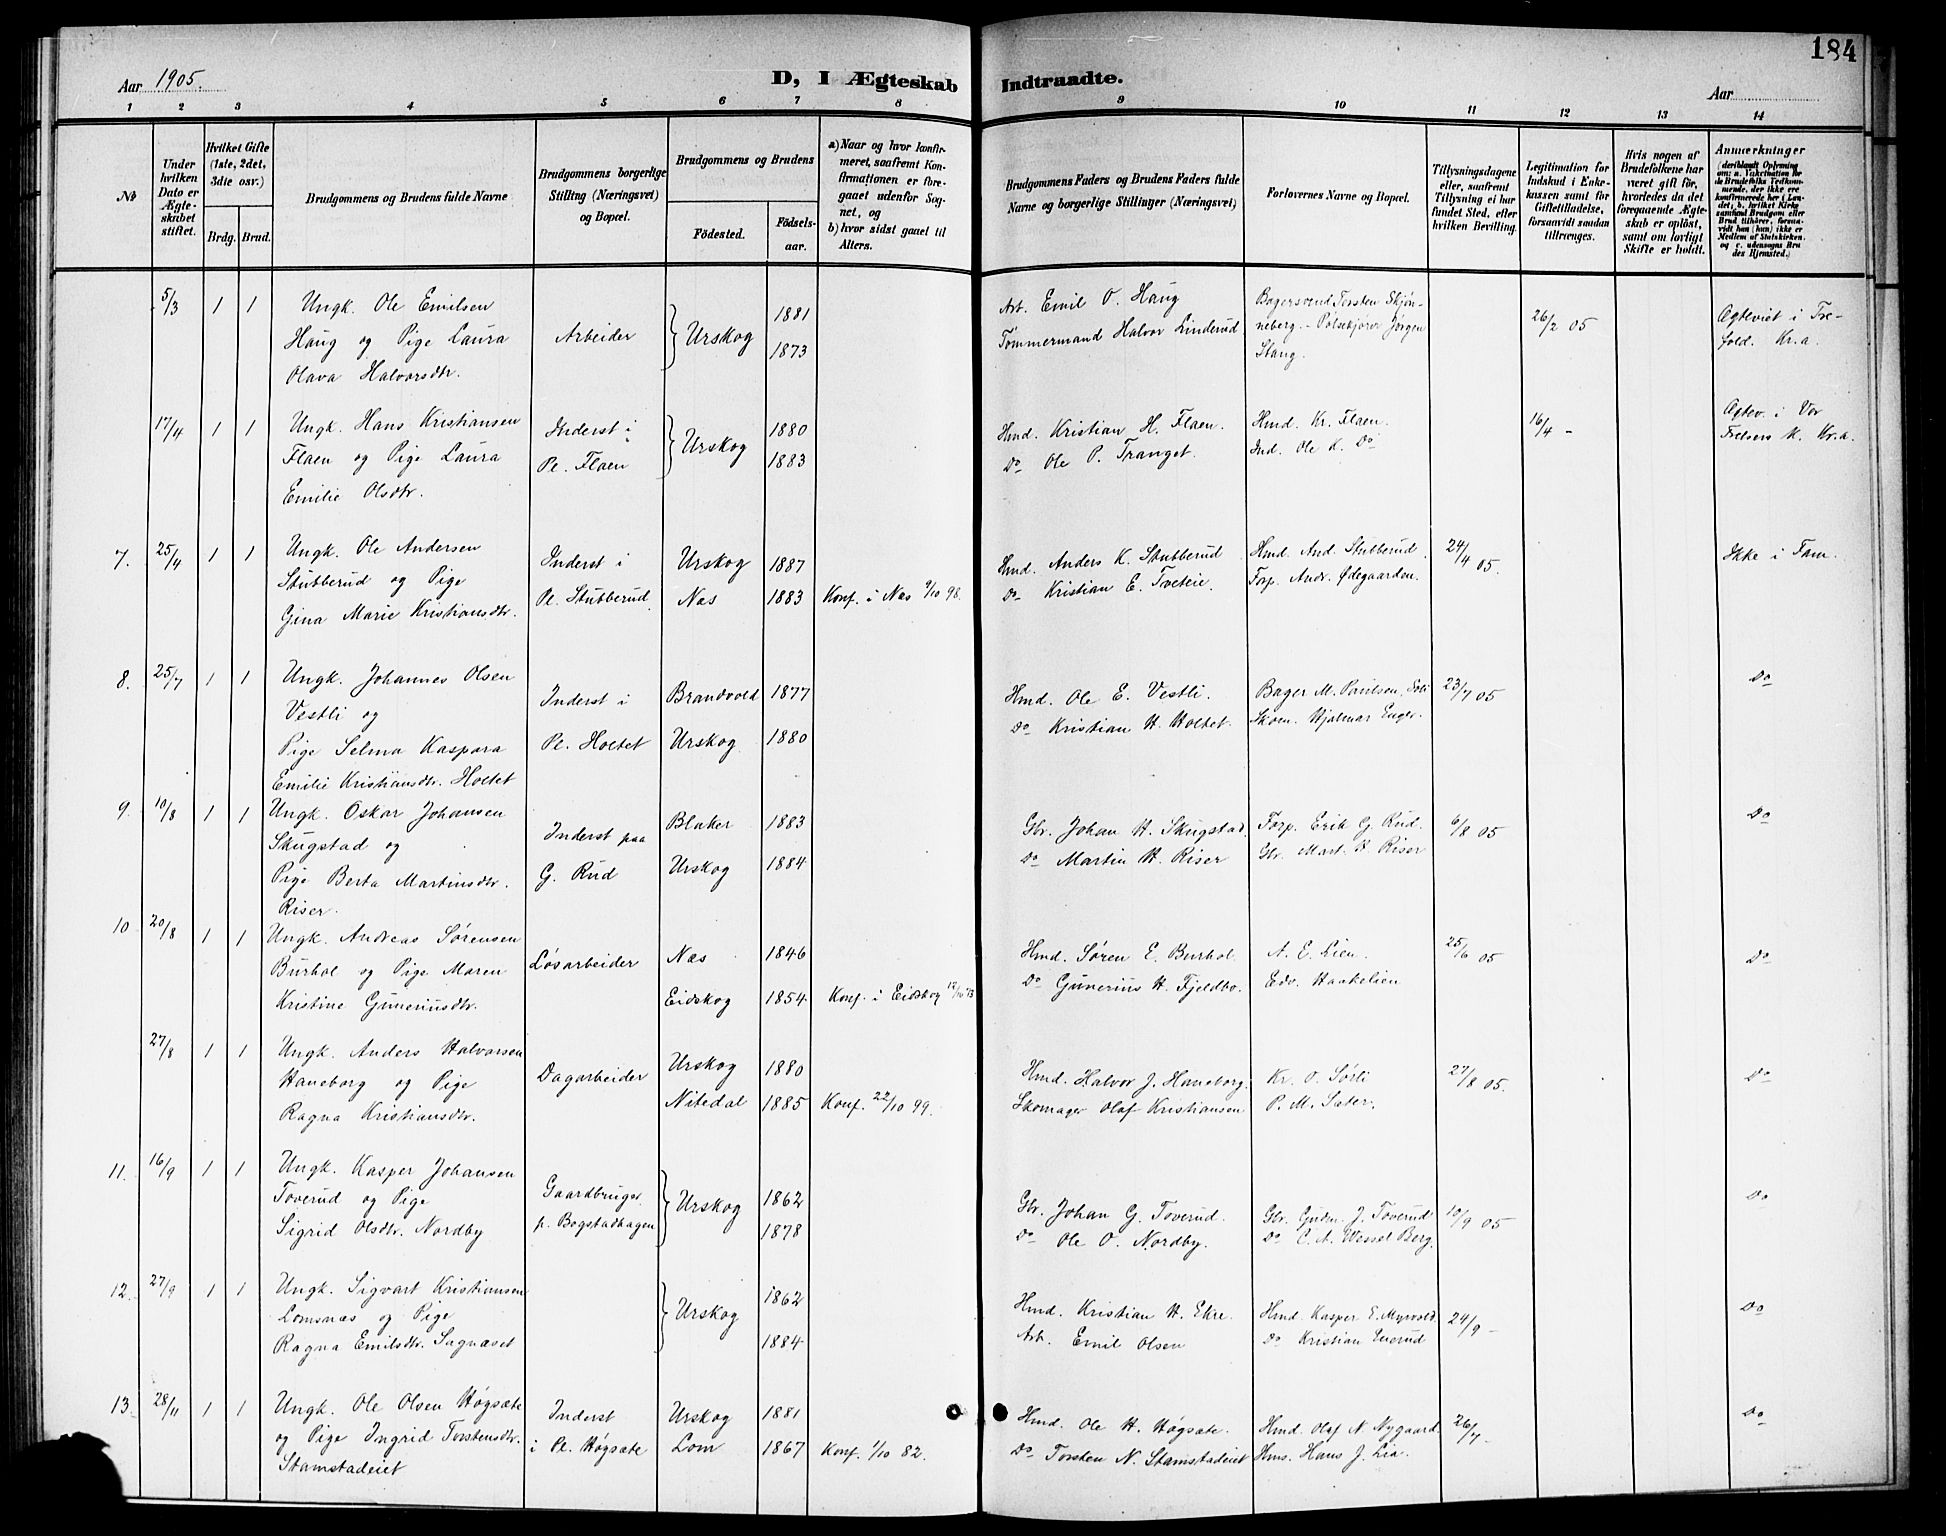 184
Aar 1905.
D, I Ægteskab Indtraadte.
Aar
1 2 3 4 5 6 7 8 9 10 11 12 13 14
No
Under hvilken Dato er Ægteskabet stiftet.
Hvilket Gifte (1ste, 2det, 3die osv.)
Brdg. Brud.
Brudgommens og Brudens fulde Navne
Brudgommens borgerlige Stilling (Næringsvei) og Bopæl.
Brudgommens og Brudens
Födested. Födselsaar.
a) Naar og hvor konfirmeret, saafremt Konfirmationen er foregaaet udenfor Sognet, og
b) hvor sidst gaaet til Alters.
Brudgommens Faders og Brudens Faders fulde Navne og borgerlige Stillinger (Næringsvei)
Forlovernes Navne og Bopæl.
Tillysningsdagene eller, saafremt Tillysning ei har fundet Sted, efter hvilken Bevilling.
Legitimation for Indskud i Enkekassen samt for Giftetilladelse, forsaavidt saadan tiltrænges.
Hvis nogen af Brudefolkene har været gift för, hvorledes da det foregaaende Ægteskab er oplöst, samt om lovligt Skifte er holdt.
Anmærkninger
(deriblandt Oplysning om: a. Vakcination for de Brudefolks Vedkommende, der ikke ere konfirmerede her i Landet, b. hvilket Kirkesamfund Brudgom eller Brud tilhörer, forsaavidt han (hun) ikke er Medlem af Statskirken, og c. udensogns Brudes Hjemsted.)
5/3 1 1 Ungk. Ole Emilsen
Haug og Pige Laura
Olava Halvorsdtr.
Arbeider
Urskog
1881
1873
Arb. Emil O. Haug
Tømmermand Halvor Linderud
Bagersvend Torsten Skjønneberg. - Pølsekjører Jørgen
Stang.
26/2 05
Ægteviet i Trefold. Kr.a.
17/4 1 1 Ungk. Hans Kristiansen
Flaen og Pige Laura
Emilie Olsdtr.
Inderst i
Pl. Flaen
Urskog
1880
1883
Hmd. Kristian H. Flaen.
Do Ole P. Tranget.
Hmd. Kr. Flaen.
Ind. Ole K. Do
16/4 -
Ægtev. i Vor
Frelsers K. Kr.a.
7. 25/4 1 1 Ungk. Ole Andersen
Stubberud og Pige
Gina Marie Kristiansdtr.
Inderst i
Pl. Stubberud.
Urskog 1887
Næs 1883
Konf. i Næs 9/10 98.
Hmd. Anders K. Stubberud
Do Kristian E. Tveteie.
Hmd. And. Stubberud
Forp. Andr. Ødegaarden.
24/4 05.
Ikke i Fam.
8. 25/7 1 1 Ungk. Johannes Olsen
Vestli og
Pige Selma Kaspara
Emilie Kristiansdtr. Holtet
Inderst i
Pl. Holtet
Brandvold 1877
Urskog 1880
Hmd. Ole E. Vestli.
Do Kristian H. Holtet.
Bager M. Paulsen, Soli
Skom. Hjalmar Enger.
23/7 05
Do
9. 10/8 1 1 Ungk. Oskar Johansen
Skugstad og
Pige Berta Martinsdtr.
Riser.
Inderst paa
G. Rud
Blaker 1883
Urskog 1884
Gbr. Johan H. Skugstad.
Do Martin H. Riser
Forp. Erik G. Rud.
Gbr. Mart. H. Riser
6/8 05
Do
10 20/8 1 1 Ungk. Andreas Sørensen
Burhol og Pige Maren
Kristine Guneriusdtr.
Løsarbeider
Næs 1846
Eidskog 1854
Konf. i Eidskog 12/10 73
Hmd. Søren E. Burhol.
Do Gunerius H. Fjeldbo.
A. E. Lien.
Edv. Haakelien
25/6 05
Do
27/8 1 1 Ungk. Anders Halvorsen
Haneborg og Pige
Ragna Kristiansdtr.
Dagarbeider
Urskog 1880
Nitedal 1885
Konf. 22/10 99.
Hmd. Halvor J. Haneborg.
Skomager Olaf Kristiansen
Kr. O. Sørli
P. M. Sæter.
27/8 05.
Do
11. 16/9 1 1 Ungk. Kasper Johansen
Toverud og Pige
Sigrid Olsdtr. Nordby
Gaardbruger
p. Bogstadhagen
Urskog
1862
1878
Gbr. Johan G. Toverud.
Do Ole O. Nordby.
Gbr. Gulm. J. Toverud
Do C. A. Wessel Berg.
10/9 05
Do
12. 27/9 1 1 Ungk. Sigvart Kristiansen
Lomsnæs og Pige
Ragna Emilsdtr. Sagnæset
Urskog
1862
1884
Hmd. Kristian H. Ekre.
Arb. Emil Olsen
Hmd. Kasper E. Myrvold.
Do Kristian Enerud
24/9 -
Do
13. 28/11 1 1 Ungk. Ole Olsen Høgsæte
og Pige Ingrid Torstensdtr.
Stamstadeiet
Inderst
i Pl. Høgsæte
Urskog 1881
Lom 1867
Konf. 1/10 82.
Hmd. Ole H. Høgsæte.
Do Torsten N. Stamstadeiet
Hmd. Olaf N. Nygaard
Hms. Hans J. Lia.
26/7 -
Do